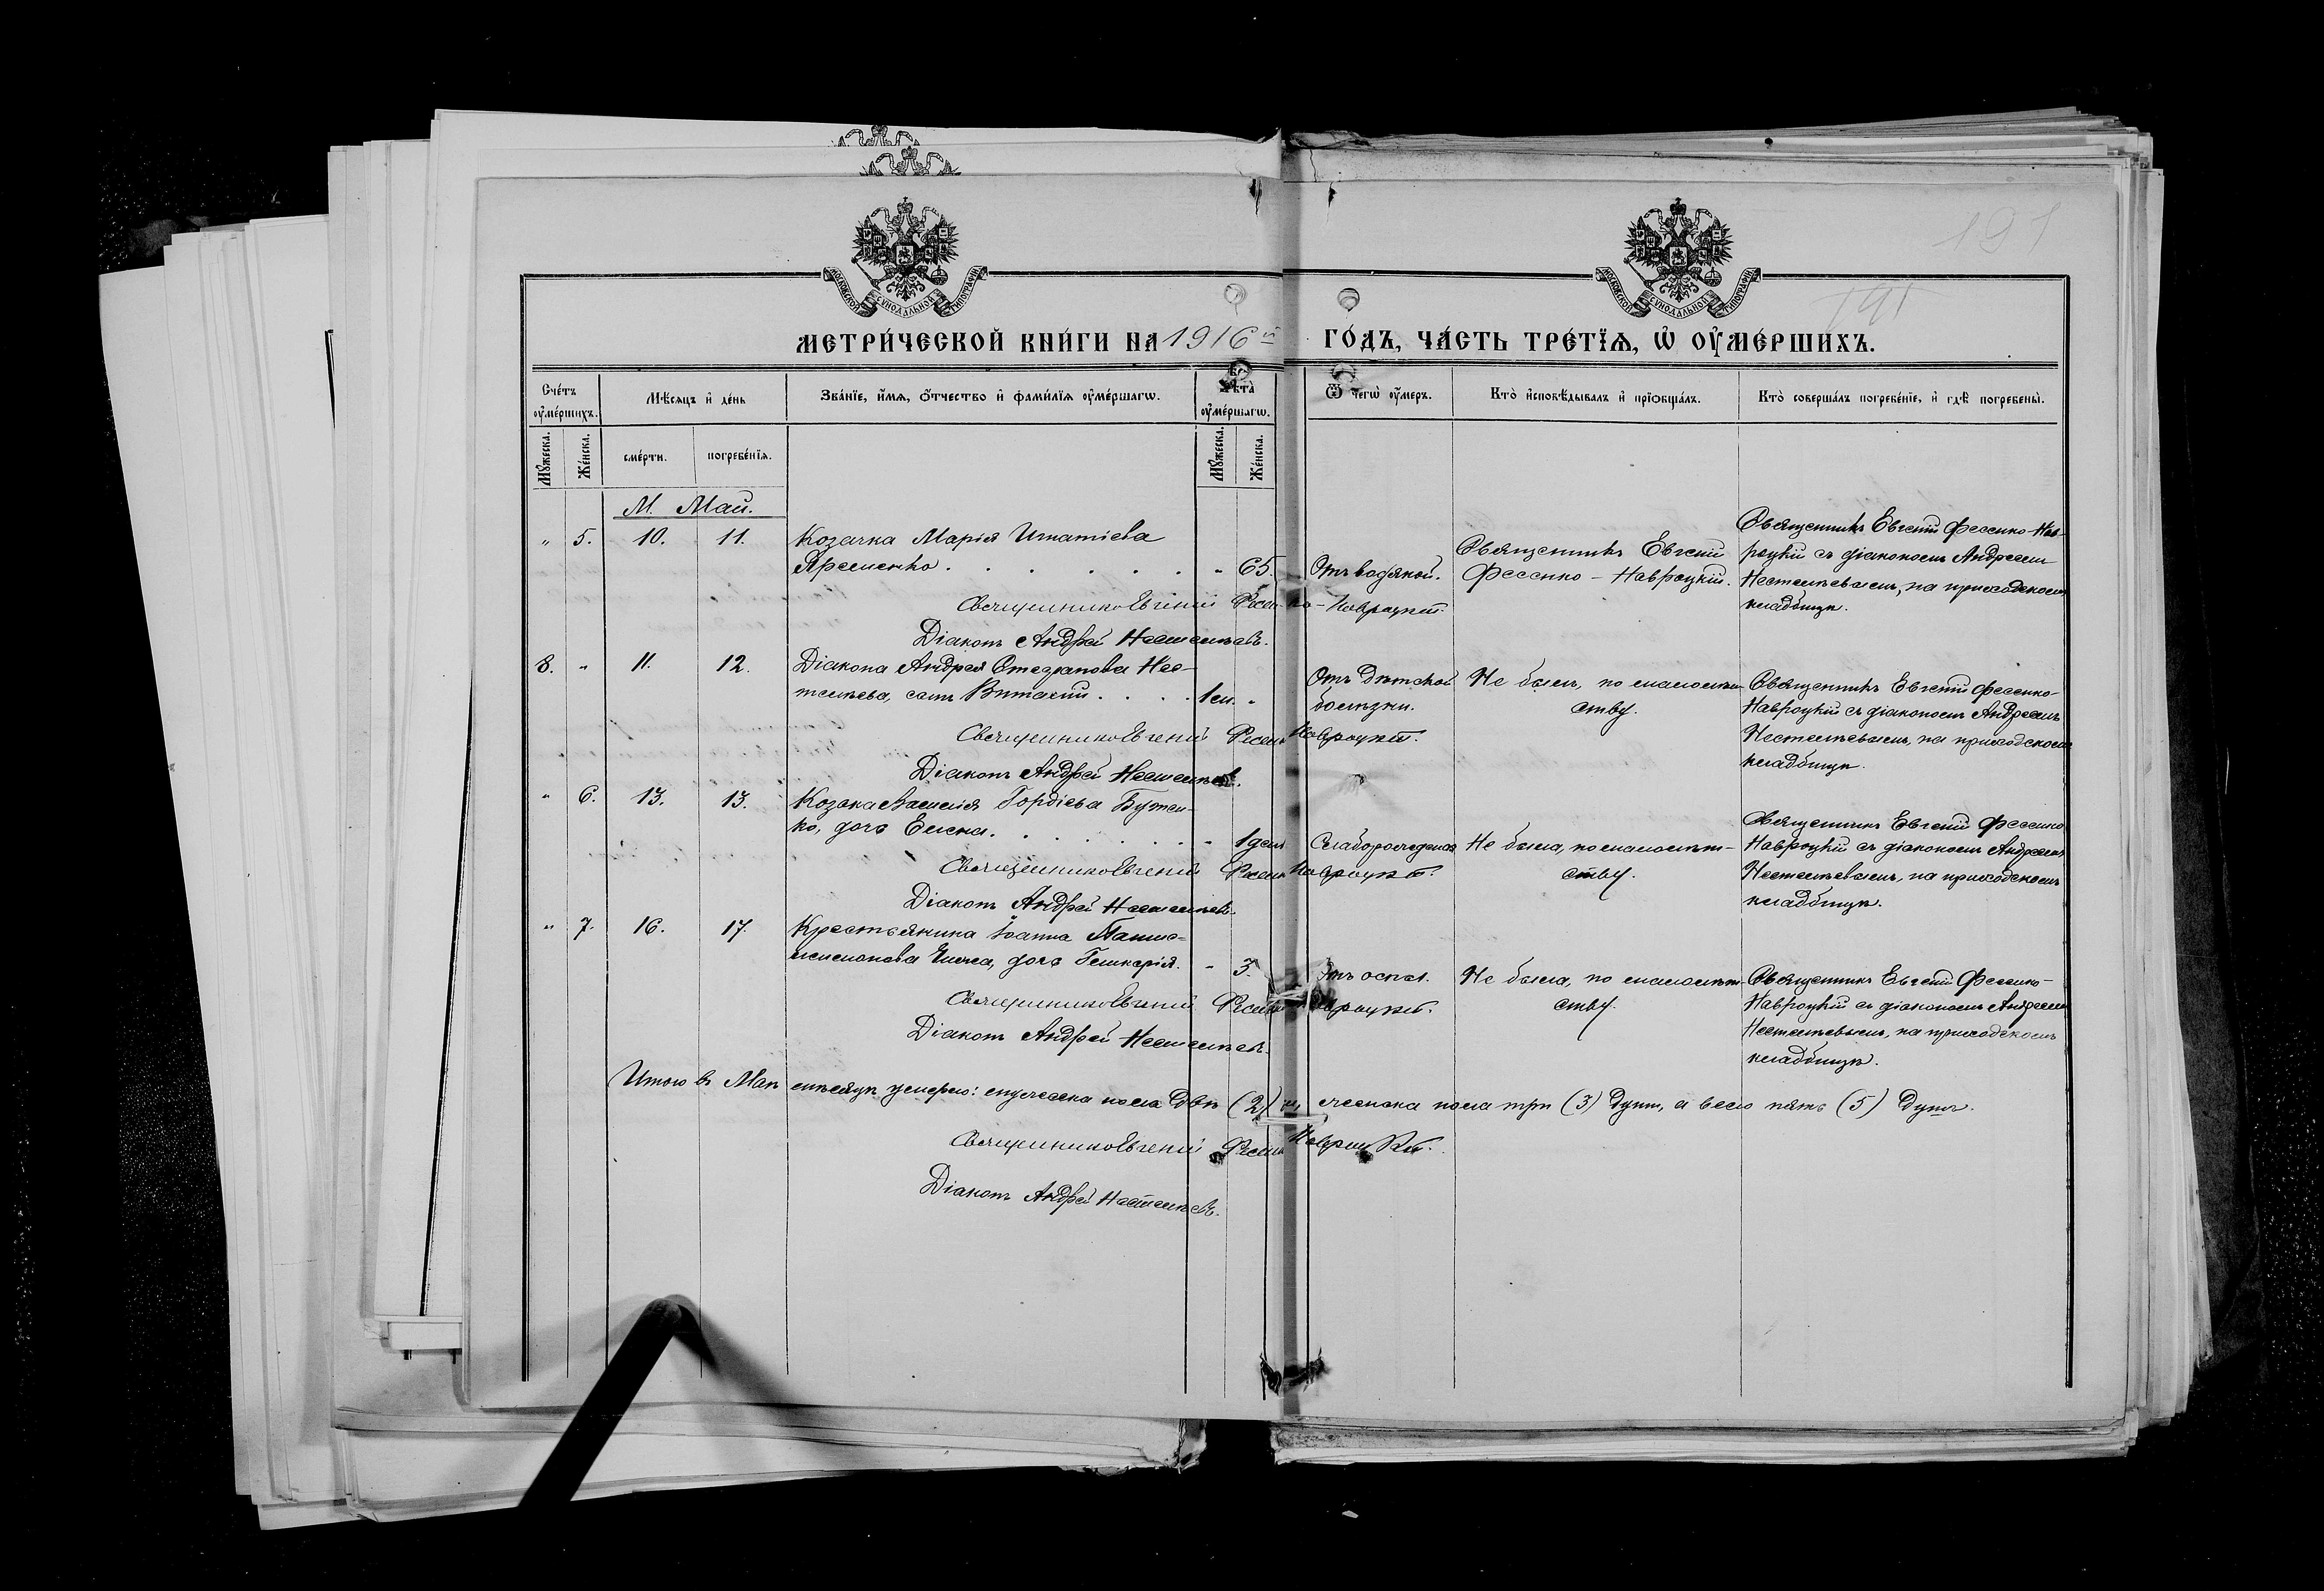 191
191
МОСКОВСКОЙ СѴНОДАЛЬНОЙ ТИПОГРАФІИ
МОСКОВСКОЙ СѴНОДАЛЬНОЙ ТИПОГРАФІИ
МЕТРИ́ЧЕСКОЙ КНИ́ГИ НА 1916 й ГО́ДЪ, ЧА́СТЬ ТРЕ́ТЇѦ, Ѽ ОУ҆МЕ́РШИХЪ.
Сче́тъ оу҆ме́ршихъ.
Мꙋ́жеска.
Же́нска.
Мѣ́сѧцъ и҆ де́нь
сме́рти.
погребе́нїѧ.
Зва́нїе, и҆́мѧ, ѻ҆́тчество и҆ фами́лїѧ оу҆ме́ршагѡ.
Лѣ́та оу҆ме́ршагѡ.
Мꙋ́жеска.
Же́нска.
Ѿ чегѡ̀ оу҆́меръ.
Кто̀ и҆сповѣ́дывалъ и҆ прїѻбща́лъ.
Кто̀ соверша́лъ погребе́нїе, и҆ гдѣ̀ погребены̀.
М. Май.
" 5. 10. 11. Козачка Марія Игнатіева
Яременко . . . . . . " 65. Отъ водяной.
Священникъ Евгеній
Фесенко-Навроцкій.
Священникъ Евгеній Фесенко-Нав-
роцкій съ діакономъ Андреем
Нестелѣевымъ, на приходскомъ
кладбищѣ.
Священникъ Евгеній Фесенко-Навроцкій.
Діаконъ Андрей
8. " 11. 12. Діакона Андрея Стефанова Нес-
сынъ Виталий . . . . 1 м. "
Отъ дѣтской
болѣзни.
Не былъ, по малолѣт-
ству.
Священникъ Евгеній Фесенко-
Навроцкій съ діакономъ Андреемъ
на приходскомъ
кладбищѣ.
Священникъ Евгеній Фесенко Навроцкій.
Діаконъ Андрей
" 6. 13. 13. Козака Василія Гордіева
ко, дочь Елена . . . . . . " 1 день
Слаборожденая
Не была, по малолѣт-
ству.
Священникъ Евгеній Фесенко
Навроцкій съ діакономъ Андреемъ
на приходскомъ
кладбищѣ.
Священникъ Евгеній Фесенко Навроцкій.
Діаконъ Андрей
" 7. 16. 17. Крестьянина Іоанна
дочь Гликерія. " 3.
Отъ оспы.
Не была, по малолѣт-
ству.
Священникъ Евгеній Фесенко-
Навроцкій съ діакономъ Андреем
на приходскомъ
кладбищѣ.
Священникъ Евгеній Фесенко Навроцкій.
Діаконъ Андрей
Итого въ Маѣ мѣсяцѣ умерло: мужеска пола двѣ (2) и, женска пола три (3) души, а всего пять (5) душъ.
Священникъ Евгеній Фесенко Навроцкій.
Діаконъ Андрей